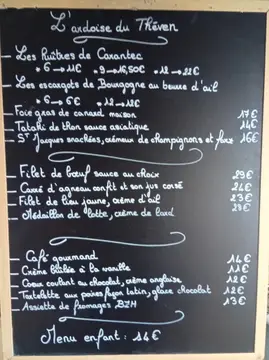 L'ardoise du Théven
Les Huîtres de Carantec
* 6 → 11€ * 9 → 16,50€ * 12 → 22€
Les escargots de Bourgogne au beurre d'ail
* 6 → 6€ * 12 → 12€
Foie gras de canard maison 17€
Tataki de thon sauce asiatique 14€
St Jacques snackées, crémeux de champignons et 16€
Filet de bœuf sauce au choix 29€
Carré d'agneau confit et son jus corsé 24€
Filet de lieu jaune, crème d'ail 23€
Médaillon de lotte, crème de lard
Café gourmand 14€
Crème brûlée à la vanille 11€
Coeur coulant au chocolat, crème anglaise 12€
Tartelette aux poires façon tatin, glace chocolat 12€
Assiette de fromages BZH 13€
Menu enfant : 14€